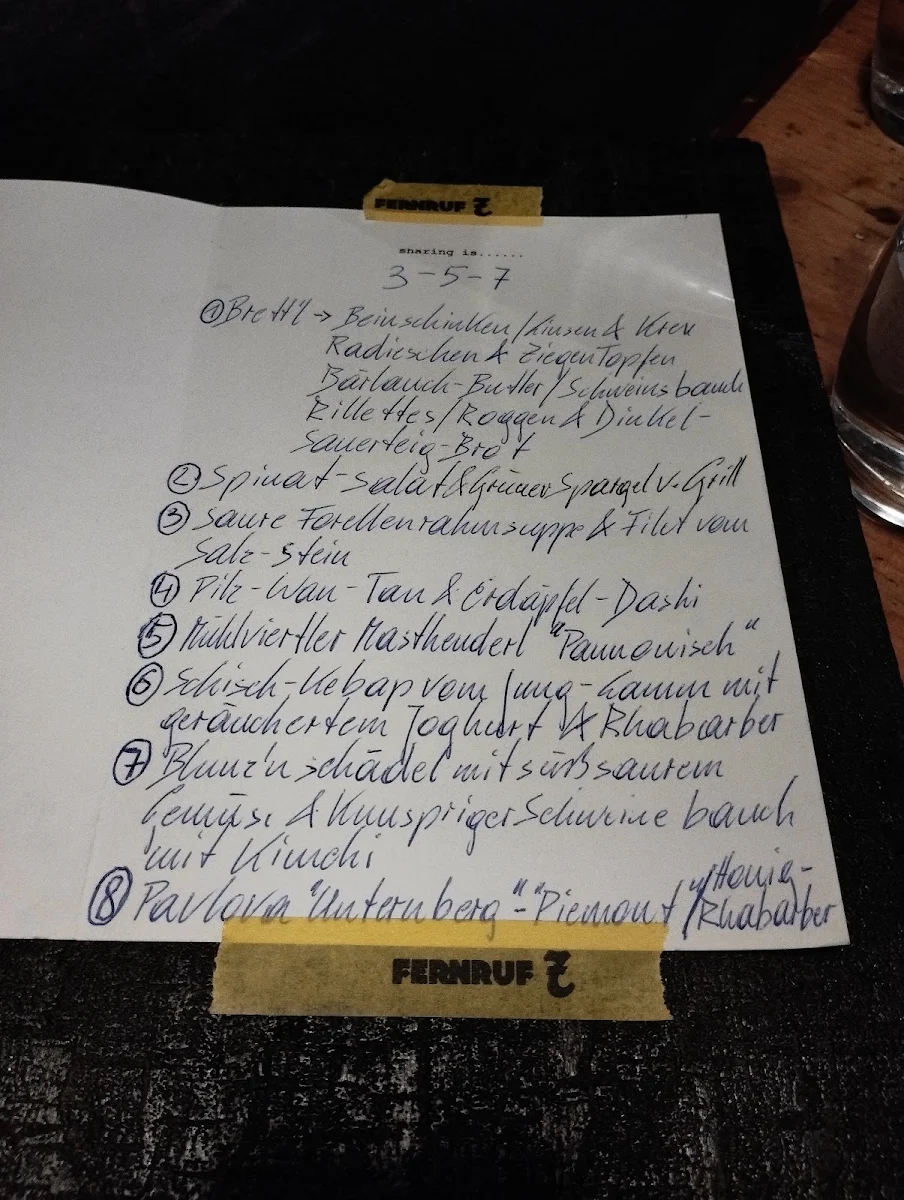 FERNRUF 7
sharing is......
3-5-7
① Brettl → Beinschinken/Linsen & Kren
Radieschen & ZiegenTopfen
Bärlauch-Butter/Schweinsbauch
Rillettes/Roggen & Dinkel-
Sauerteig-Brot
② Spinat-Salat & Grüner Spargel v. Grill
③ Saure Forellenrahmsuppe & Filet vom
Salz-Stein
④ Pilz-Wan-Tan & Erdäpfel-Dashi
⑤ Mühlviertler Masthenderl "Pannonisch"
⑥ Schisch-Kebap vom Jung-Lamm mit
geräuchertem Joghurt & Rhabarber
⑦ Blunz'nschädel mit süßsaurem
Gemüse & Knuspriger Schweinebauch
mit Kimchi
⑧ Pavlova "Unternberg"-"Piemont"/Honig-
Rhabarber
FERNRUF 7